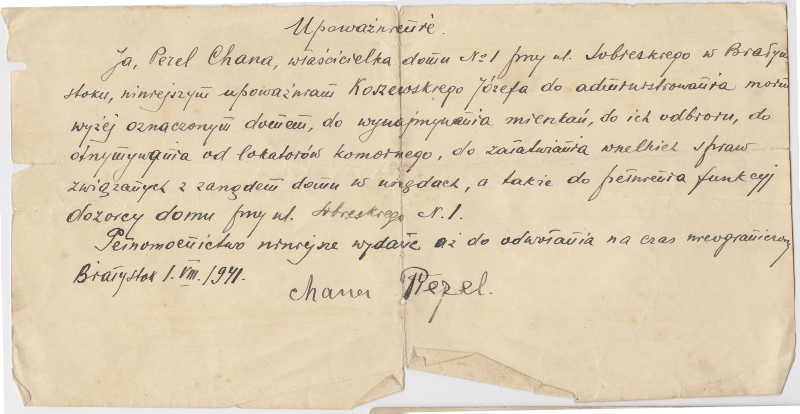 Upoważnienie.
Ja, Pezel Chana, właścicielka domu № 1 przy ul. Sobieskiego w Białym
stoku, niniejszym upoważniam Koszewskiego Józefa do administrowania moim
wyżej oznaczonym domem, do wynajmywania mieszkań, do ich odbioru, do
otrzymywania od lokatorów komornego, do załatwiania wszelkich spraw
związanych z zarządem domu w urzędach, a także do pełnienia funkcyj
dozorcy domu przy ul. Sobieskiego N. 1.
Pełnomocnictwo niniejsze wydaję aż do odwołania na czas nieograniczony
Białystok 1. VIII. 1941.
Chana Pezel.